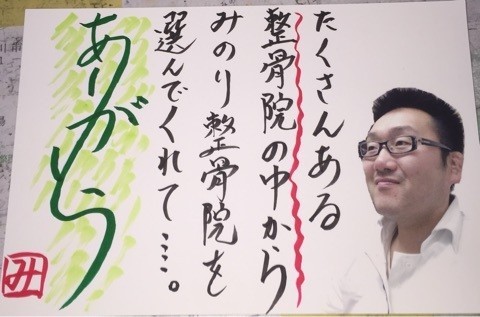 たくさんある
整骨院の中から
みのり整骨院を
選んでくれて…。
ありがとう
み